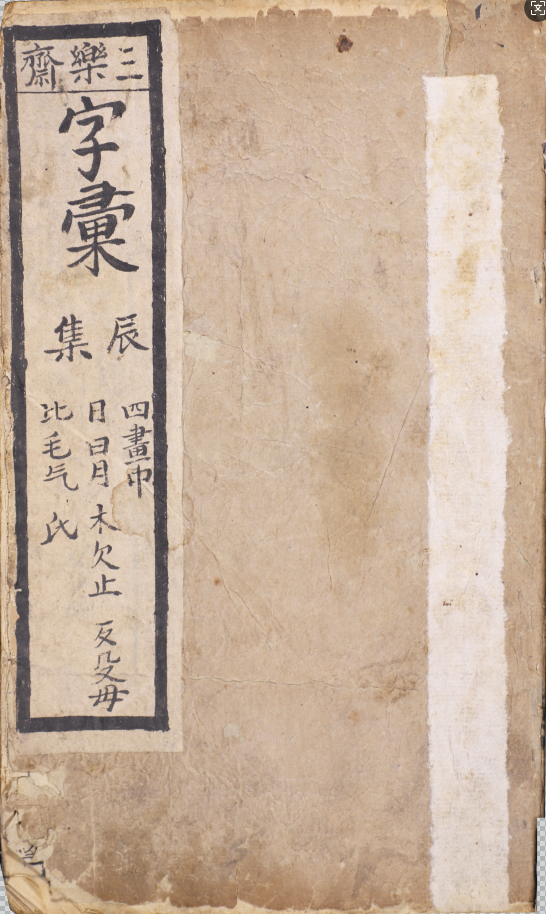 三樂齋
字彙
辰集
四畫中
日曰月木欠止歹殳毋
比毛气氏